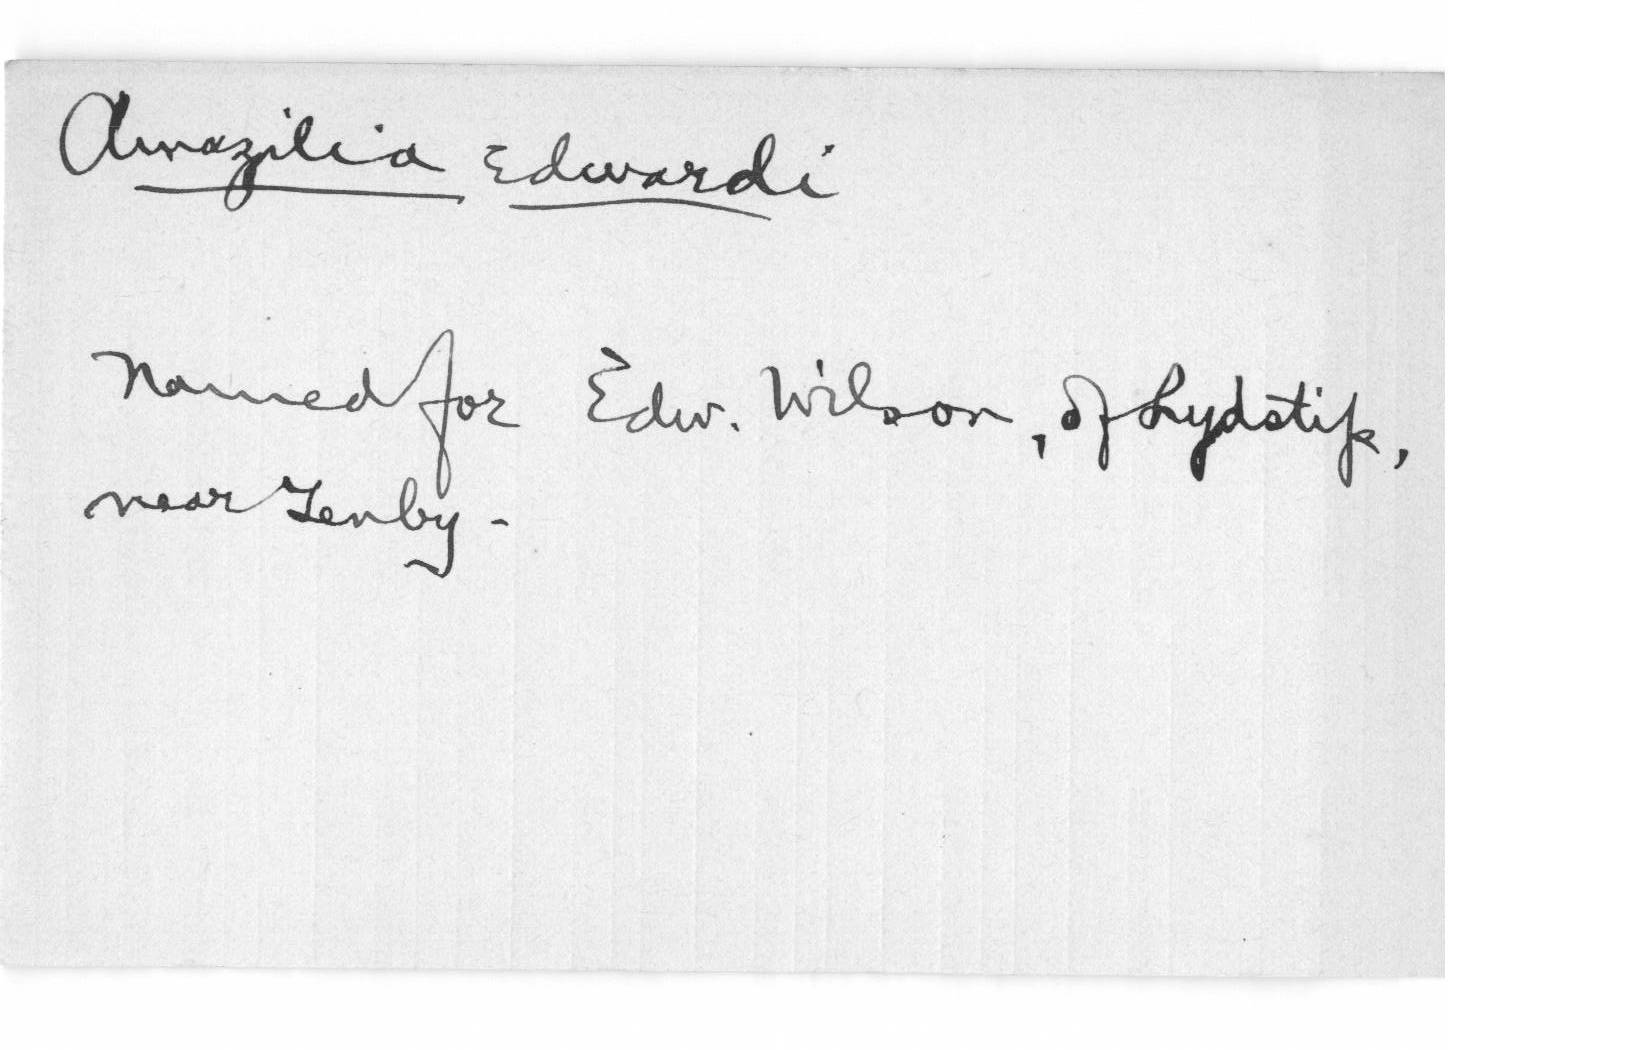 Amazilia Edwardi
Named for Edw. Wilson, of Lydstip,
near Tenby -